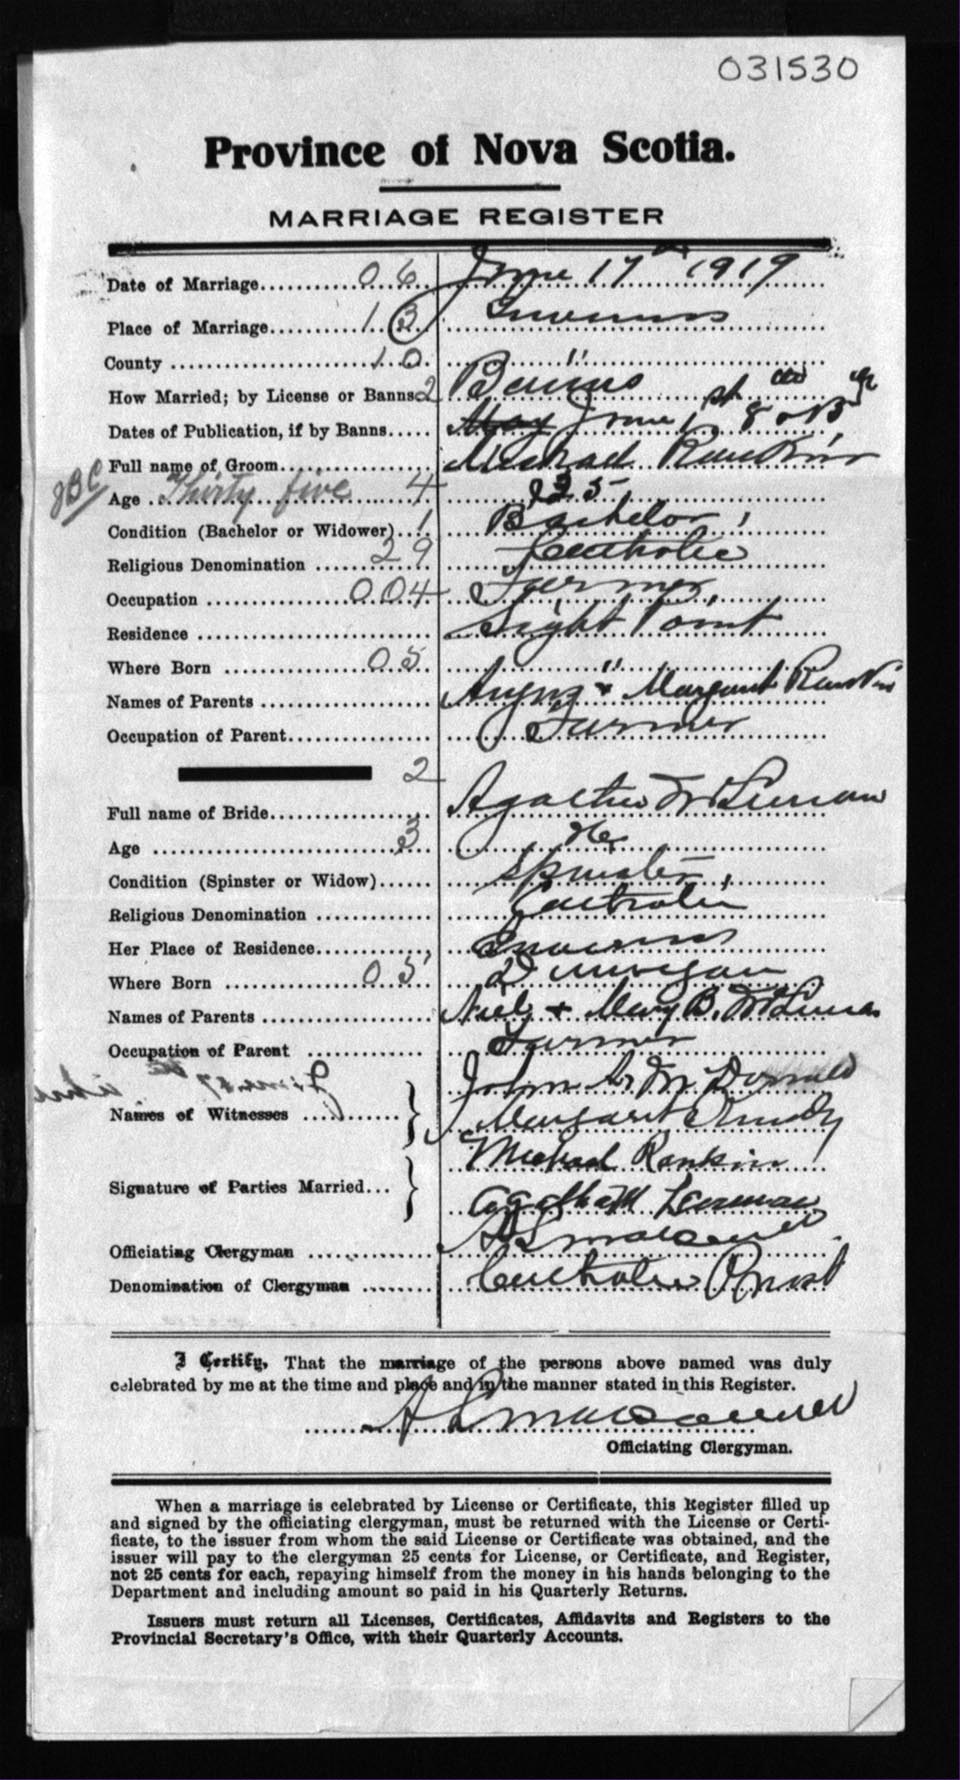 031530
Province of Nova Scotia.
MARRIAGE REGISTER
Date of Marriage 06 June 17th 1919
Place of Marriage 13 Inverness
County 10 "
How Married; by License or Banns 2 Banns
Dates of Publication, if by Banns May June 1st 8
Full name of Groom Michael Rankin
JBC Age Thirty five 4 35
Condition (Bachelor or Widower) 1 Bachelor
Religious Denomination 29 Catholic
Occupation 004 Farmer
Residence Sight Point
Where Born 05 "
Names of Parents Angus & Margaret Rankin
Occupation of Parent Farmer
2
Full name of Bride Agatha McLennan
Age 3
Condition (Spinster or Widow) Spinster
Religious Denomination Catholic
Her Place of Residence Inverness
Where Born 05 Dunvegan
Names of Parents Neil & Mary B. McLennan
Occupation of Parent Farmer
Names of Witnesses John A. McDonald
Margaret
Signature of Parties Married Michael Rankin
Agatha M Lennan
Officiating Clergyman A L MacDonell
Denomination of Clergyman Catholic Priest
I Certify, That the marriage of the persons above named was duly
celebrated by me at the time and place and in the manner stated in this Register.
A L MacDonell
Officiating Clergyman.
When a marriage is celebrated by License or Certificate, this Register filled up
and signed by the officiating clergyman, must be returned with the License or Certi-
ficate, to the issuer from whom the said License or Certificate was obtained, and the
issuer will pay to the clergyman 25 cents for License, or Certificate, and Register,
not 25 cents for each, repaying himself from the money in his hands belonging to the
Department and including amount so paid in his Quarterly Returns.
Issuers must return all Licenses, Certificates, Affidavits and Registers to the
Provincial Secretary's Office, with their Quarterly Accounts.